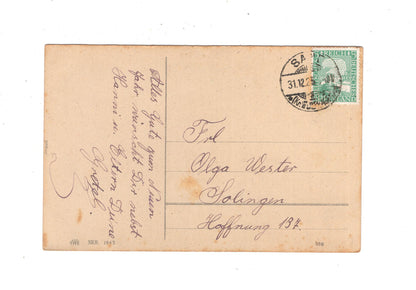 Alles Gute zum Neuen
Jahr wünscht Dir nebst
Hanni u. Eltern Deine
Gretel.
Frl
Olga Wester
Solingen
Hoffnung 137.
31.12.25
DEUTSCHES REICH
SER.